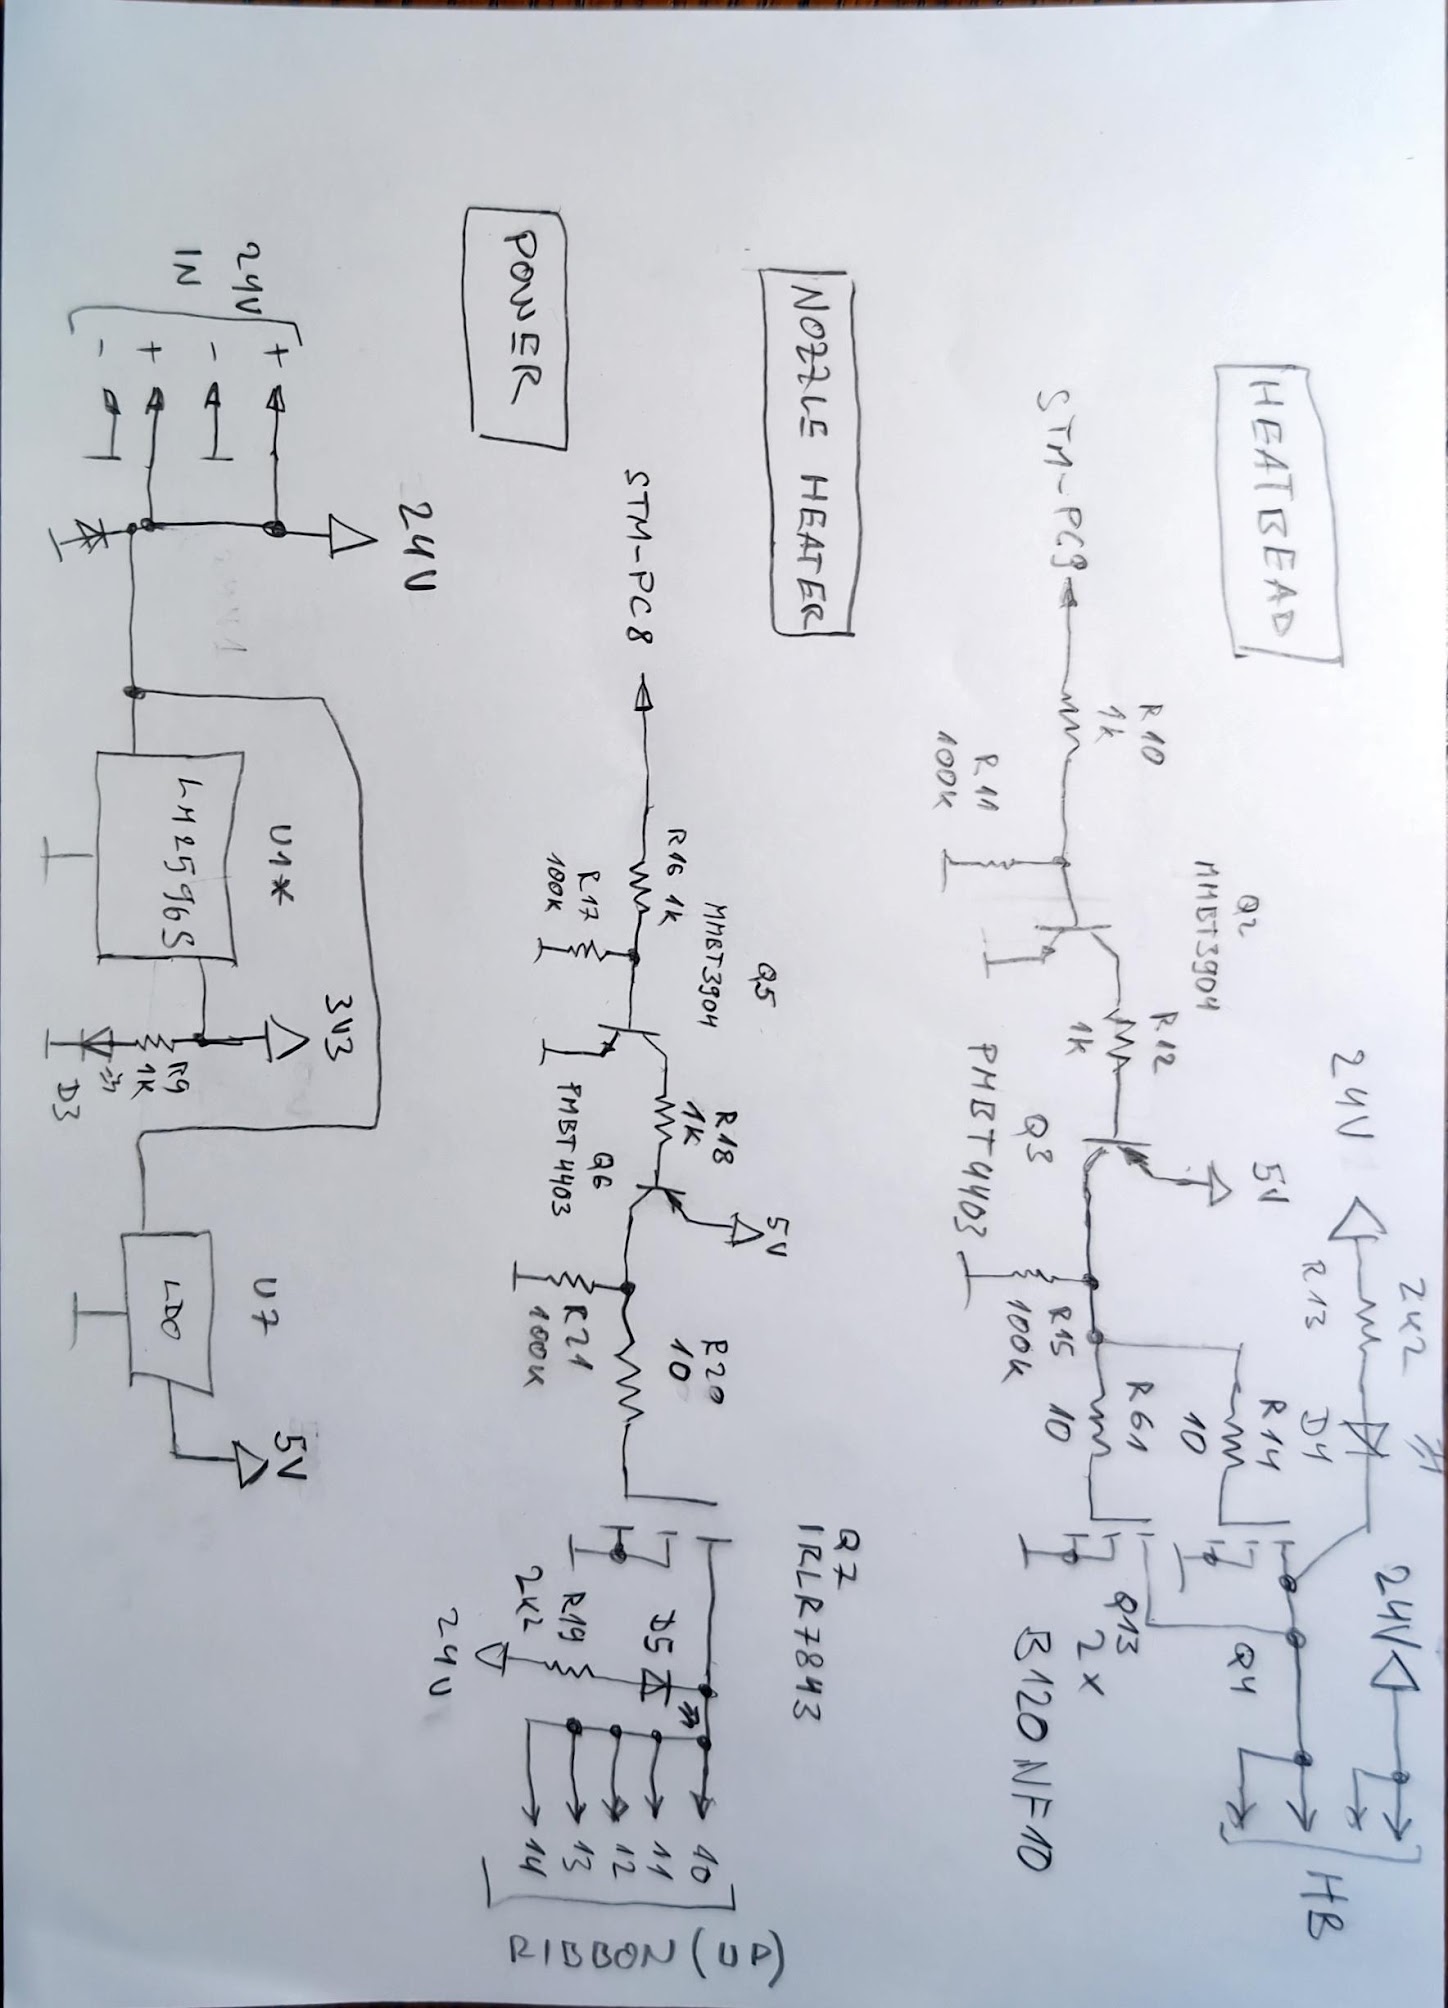 HEATBEAD
STM-PC9
R10
1k
R11
100k
Q2
MMBT3904
R12
1k
Q3
PMBT4403
5V
R15
100k
24V
2k2
R13
D4
R14
10
R61
10
24V
Q4
Q13
2x
B120NF10
HB
NOZZLE HEATER
STM-PC8
R16 1k
R17
100k
Q5
MMBT3904
R18
1k
Q6
PMBT4403
5V
R21
100k
R20
10
Q7
IRLR7843
D5
R19
2k2
24V
10
11
12
13
14
RIBBON (UP)
POWER
24V
IN
+
-
+
-
24V
U1*
LM2596S
3V3
R9
1K
D3
U7
LDO
5V